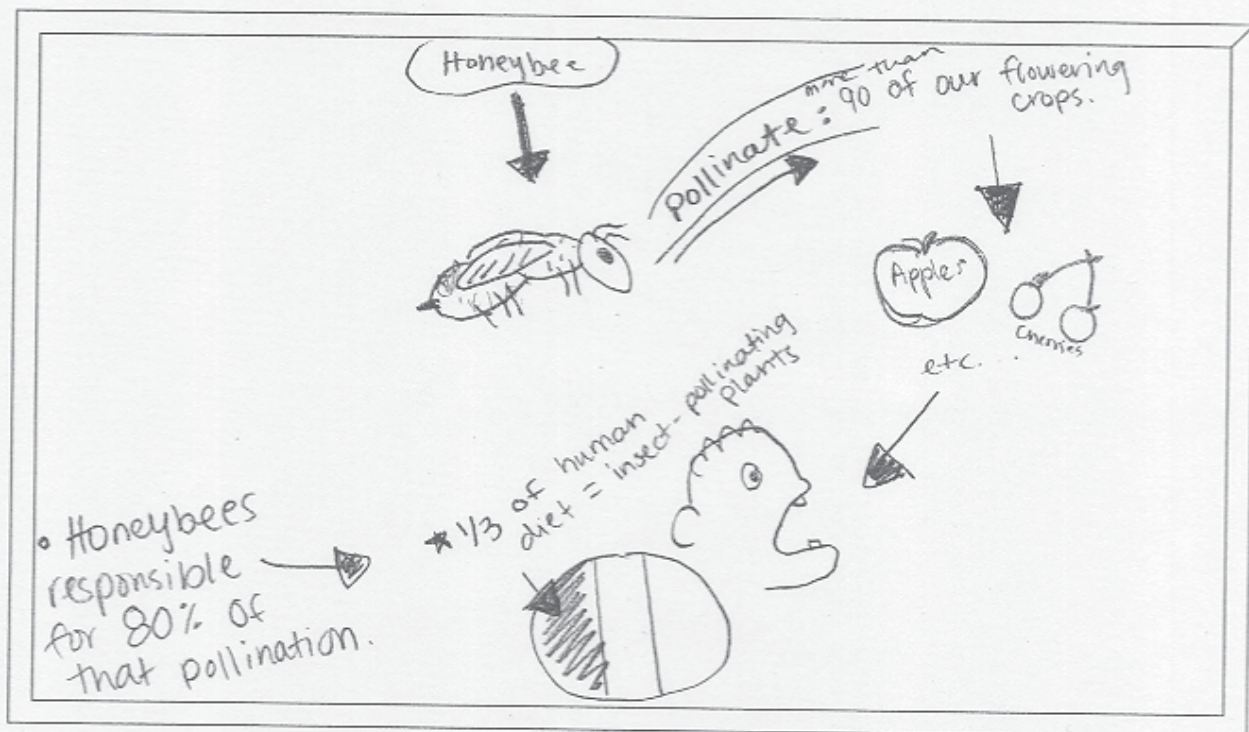 Honeybee
pollinate : more than 90 of our flowering
crops.
Apples
Cherries
etc. . .
★ 1/3 of human
diet = insect-pollinating
plants
• Honeybees
responsible
for 80% of
that pollination.